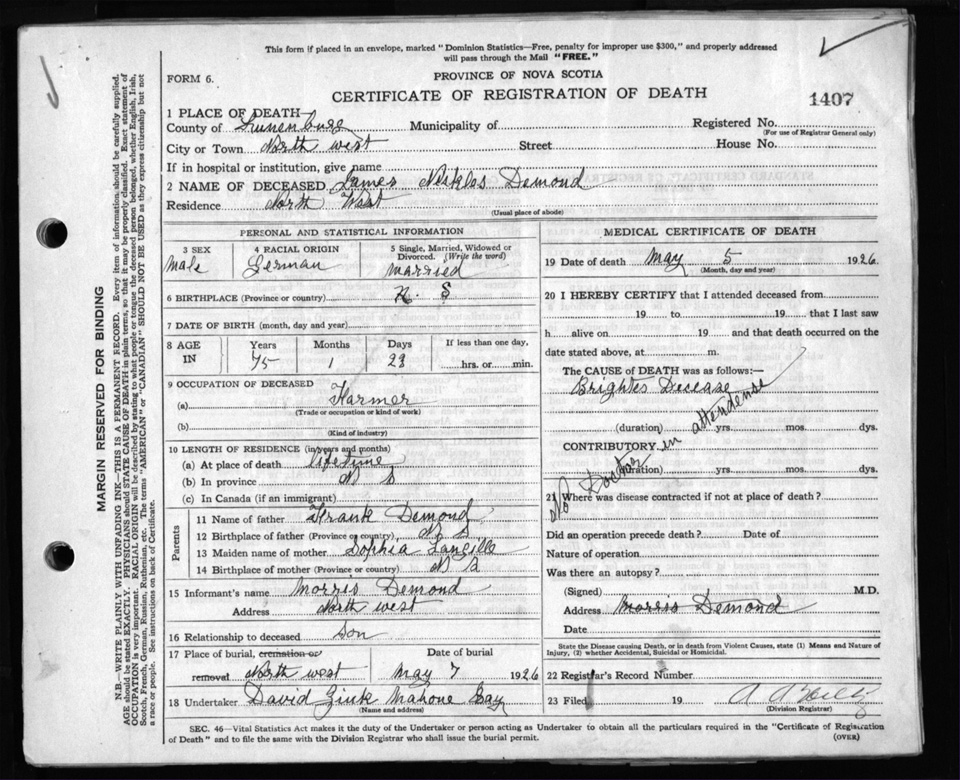 This form if placed in an envelope, marked "Dominion Statistics—Free, penalty for improper use $300," and properly addressed
will pass through the Mail "FREE."
FORM 6.
PROVINCE OF NOVA SCOTIA
CERTIFICATE OF REGISTRATION OF DEATH
1407
1 PLACE OF DEATH—
County of Lunenburg Municipality of Registered No.
(For use of Registrar General only)
City or Town North west Street House No.
If in hospital or institution, give name
2 NAME OF DECEASED James Demond
Residence North West
(Usual place of abode)
PERSONAL AND STATISTICAL INFORMATION
3 SEX 4 RACIAL ORIGIN 5 Single, Married, Widowed or
Divorced. (Write the word)
Male German married
6 BIRTHPLACE (Province or country) N. S
7 DATE OF BIRTH (month, day and year)
8 AGE IN Years Months Days If less than one day,
75 1 28 hrs. or min.
9 OCCUPATION OF DECEASED
(a) Farmer
(Trade or occupation or kind of work)
(b)
(Kind of industry)
10 LENGTH OF RESIDENCE (in years and months)
(a) At place of death lifetime
(b) In province N S
(c) In Canada (if an immigrant)
Parents
11 Name of father Frank Demond
12 Birthplace of father (Province or country) N S
13 Maiden name of mother Sophia Langille
14 Birthplace of mother (Province or country) N S
15 Informant's name Morris Demond
Address North west
16 Relationship to deceased Son
17 Place of burial, cremation or Date of burial
removal North west May 7 1926
18 Undertaker David Zink Mahone Bay
(Name and address)
MEDICAL CERTIFICATE OF DEATH
19 Date of death May 5 1926
(Month, day and year)
20 I HEREBY CERTIFY that I attended deceased from
19 to 19 that I last saw
h alive on 19 and that death occurred on the
date stated above, at m.
The CAUSE of DEATH was as follows:—
Brightes Decease
(duration) yrs. mos. dys.
CONTRIBUTORY
(duration) yrs. mos. dys.
No Doctor in attendense
21 Where was disease contracted if not at place of death?
Did an operation precede death? Date of
Nature of operation
Was there an autopsy?
(Signed) M.D.
Address Morris Demond
Date
State the Disease causing Death, or in death from Violent Causes, state (1) Means and Nature of
Injury, (2) whether Accidental, Suicidal or Homicidal.
22 Registrar's Record Number
23 Filed 19
(Division Registrar)
SEC. 46—Vital Statistics Act makes it the duty of the Undertaker or person acting as Undertaker to obtain all the particulars required in the "Certificate of Registration
of Death" and to file the same with the Division Registrar who shall issue the burial permit. (OVER)
MARGIN RESERVED FOR BINDING
N.B.—WRITE PLAINLY WITH UNFADING INK—THIS IS A PERMANENT RECORD. Every item of information should be carefully supplied.
AGE should be stated EXACTLY. PHYSICIANS should STATE CAUSE OF DEATH in plain terms, so that it may be properly classified. Exact statement of
OCCUPATION is very important. RACIAL ORIGIN will be described by stating to what people or tongue the deceased person belonged, whether English, Irish,
Scotch, French, German, Russian, Ruthenian, etc. The terms "AMERICAN" or "CANADIAN" SHOULD NOT BE USED as they express citizenship but not
a race or people. See instructions on back of Certificate.